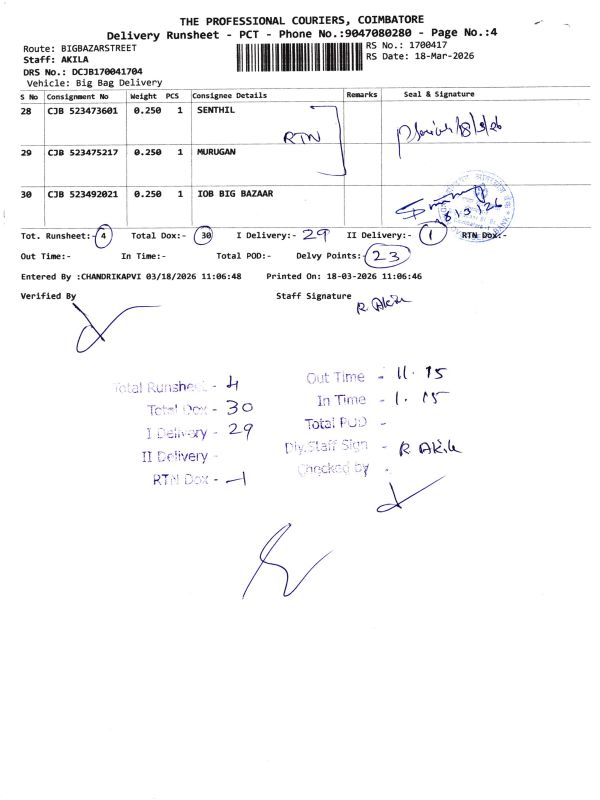 THE PROFESSIONAL COURIERS, COIMBATORE
Delivery Runsheet - PCT - Phone No.:9047080280 - Page No.:4
Route: BIGBAZARSTREET
RS No.: 1700417
Staff: AKILA
RS Date: 18-Mar-2026
DRS No.: DCJB170041704
Vehicle: Big Bag Delivery
S No Consignment No Weight PCS Consignee Details Remarks Seal & Signature
28 CJB 523473601 0.250 1 SENTHIL
RTN
29 CJB 523475217 0.250 1 MURUGAN
30 CJB 523492021 0.250 1 IOB BIG BAZAAR
Tot. Runsheet:- 4 Total Dox:- 30 I Delivery:- 29 II Delivery:- 1 RTN Dox:-
Out Time:- In Time:- Total POD:- Delvy Points:- 23
Entered By :CHANDRIKAPVI 03/18/2026 11:06:48 Printed On: 18-03-2026 11:06:46
Verified By Staff Signature
R. Akila
Total Runsheet - 4
Total Dox - 30
I Delivery - 29
II Delivery -
RTN Dox - 1
Out Time - 11.15
In Time - 1.15
Total POD -
Dly.Staff Sign - R Akila
Checked by -